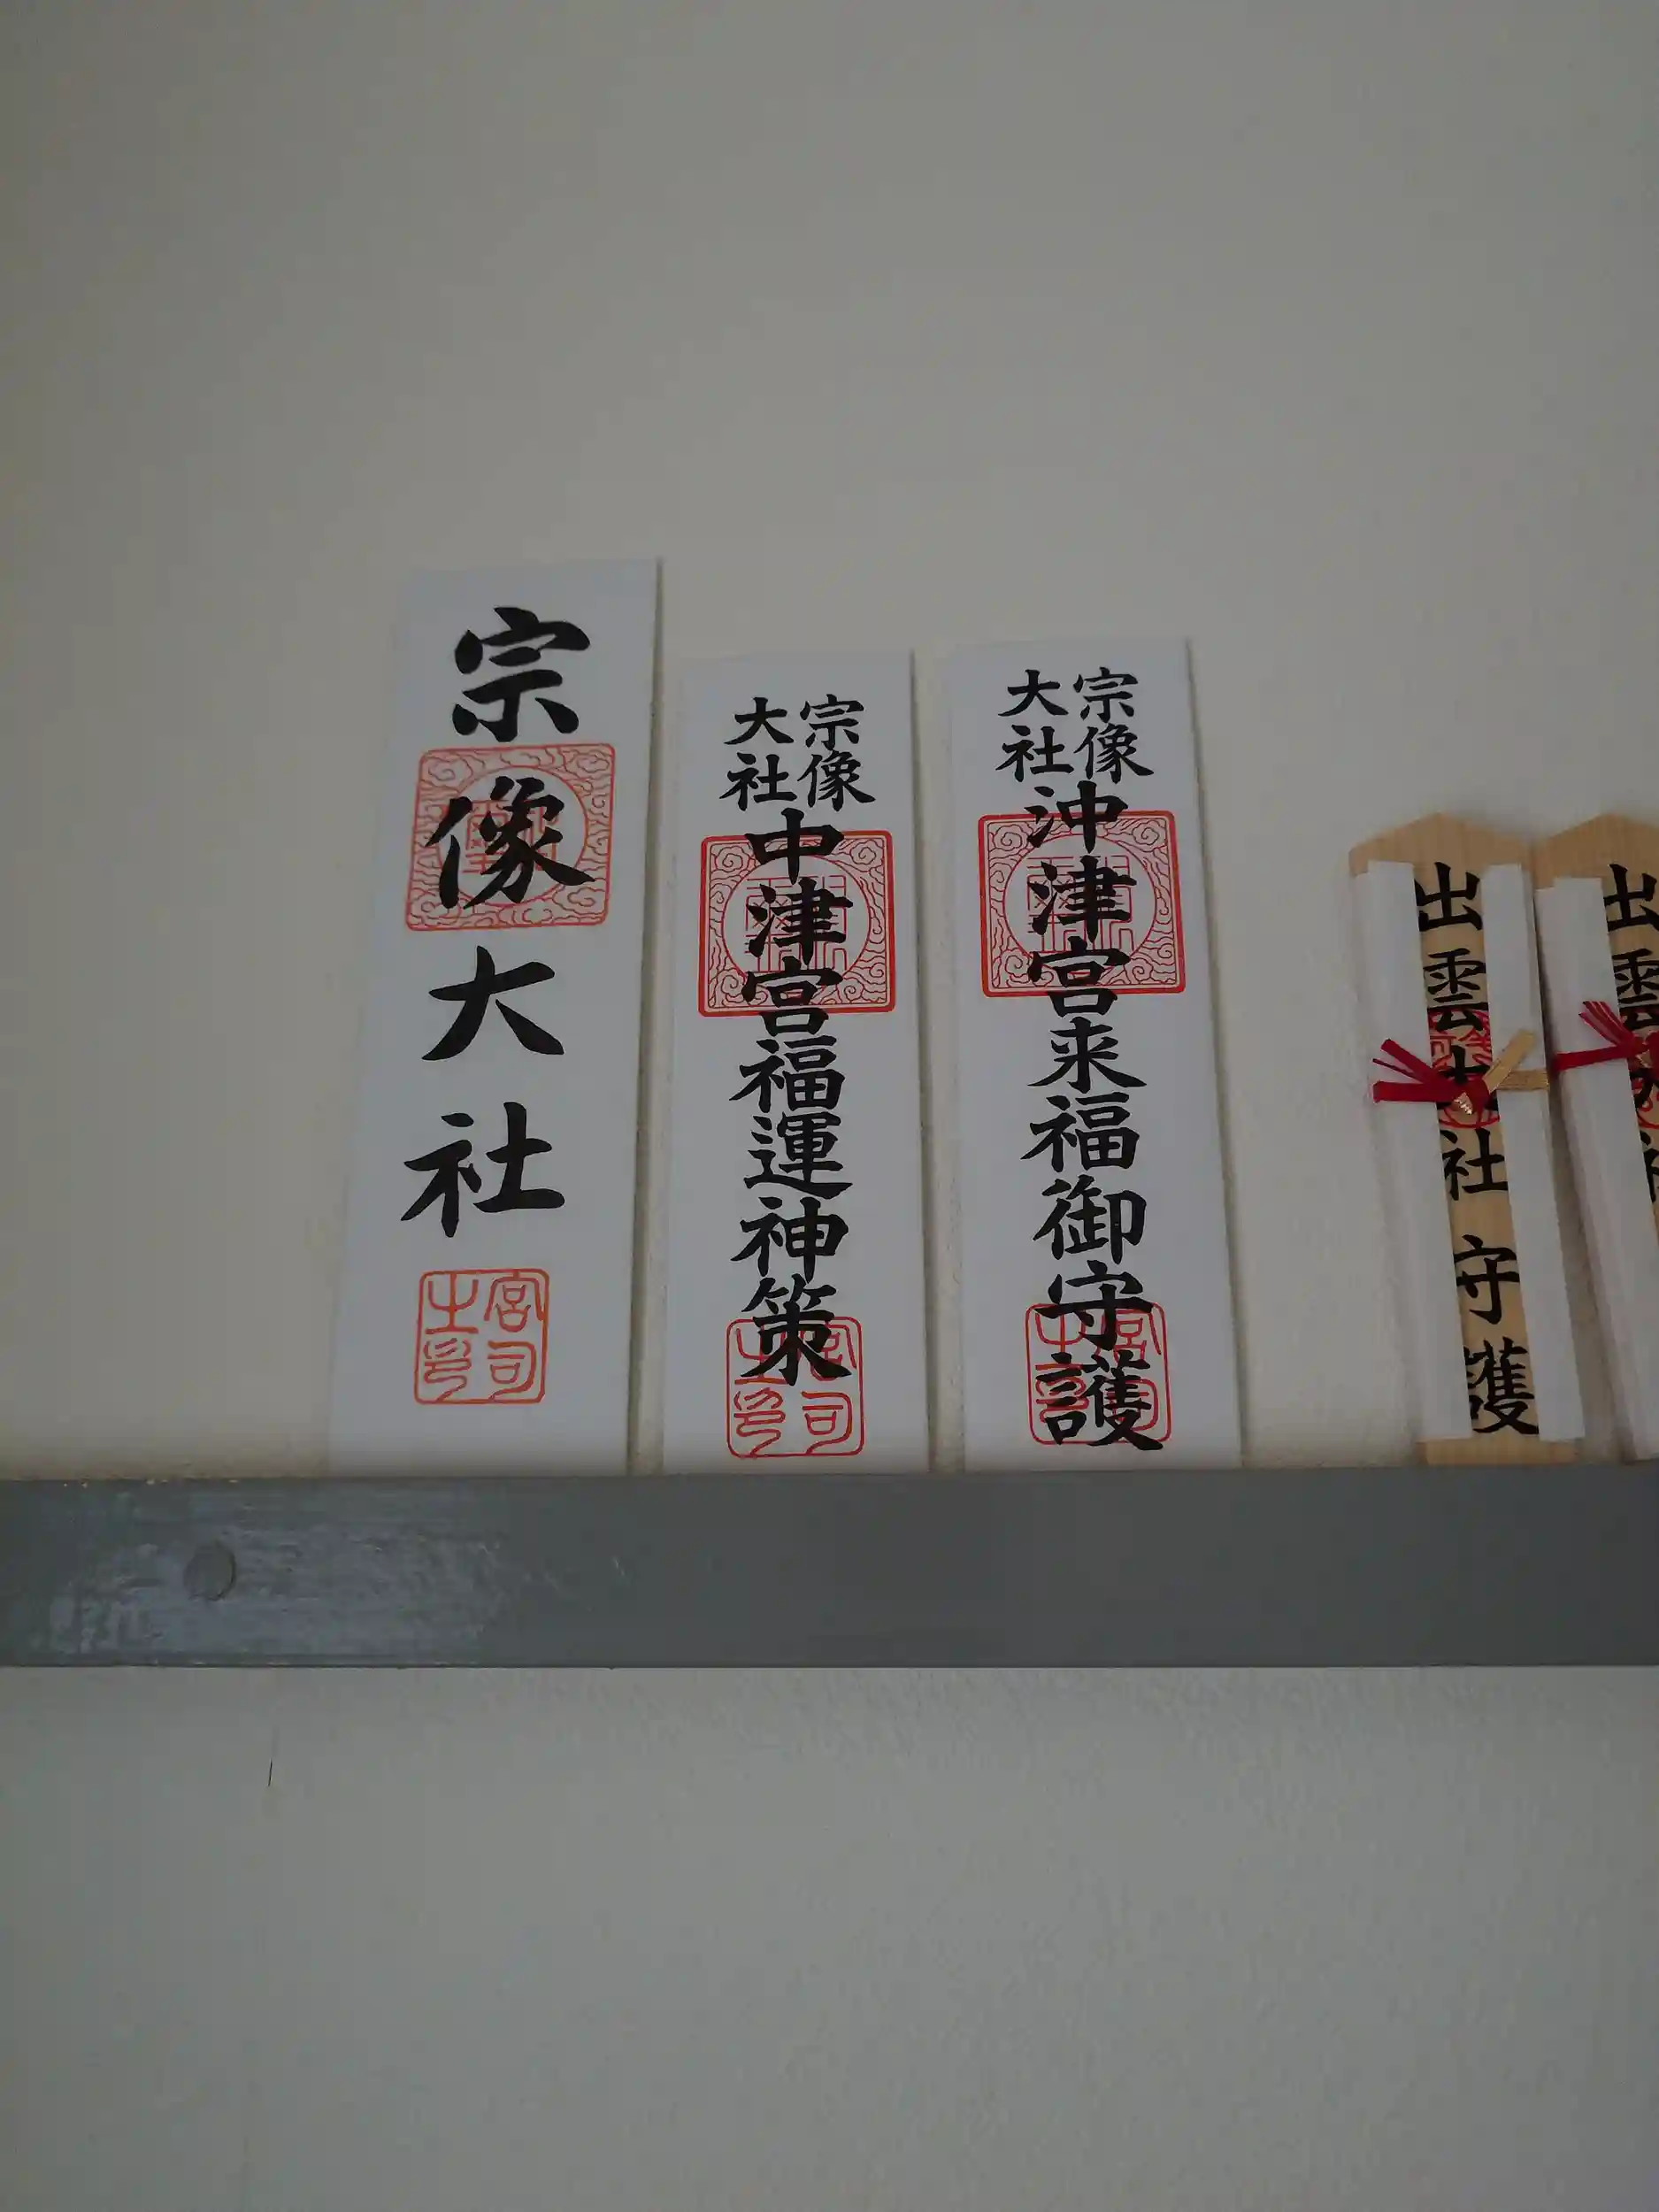 宗像大社
宮司之印
宗像
大社
中津宮福運神策
宗像
大社
沖津宮来福御守護
出雲大社守護
出雲大社